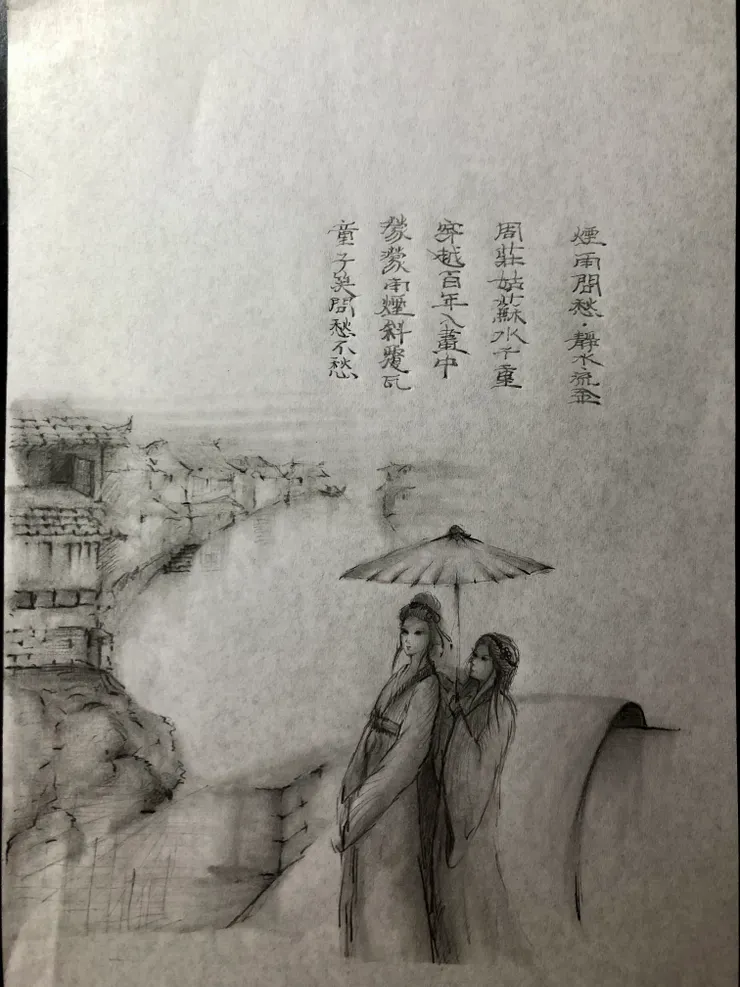 煙雨問愁·靜水流金
周莊姑蘇水千重
穿越百年入畫中
濛濛雨煙斜瓷瓦
童子笑問愁不愁